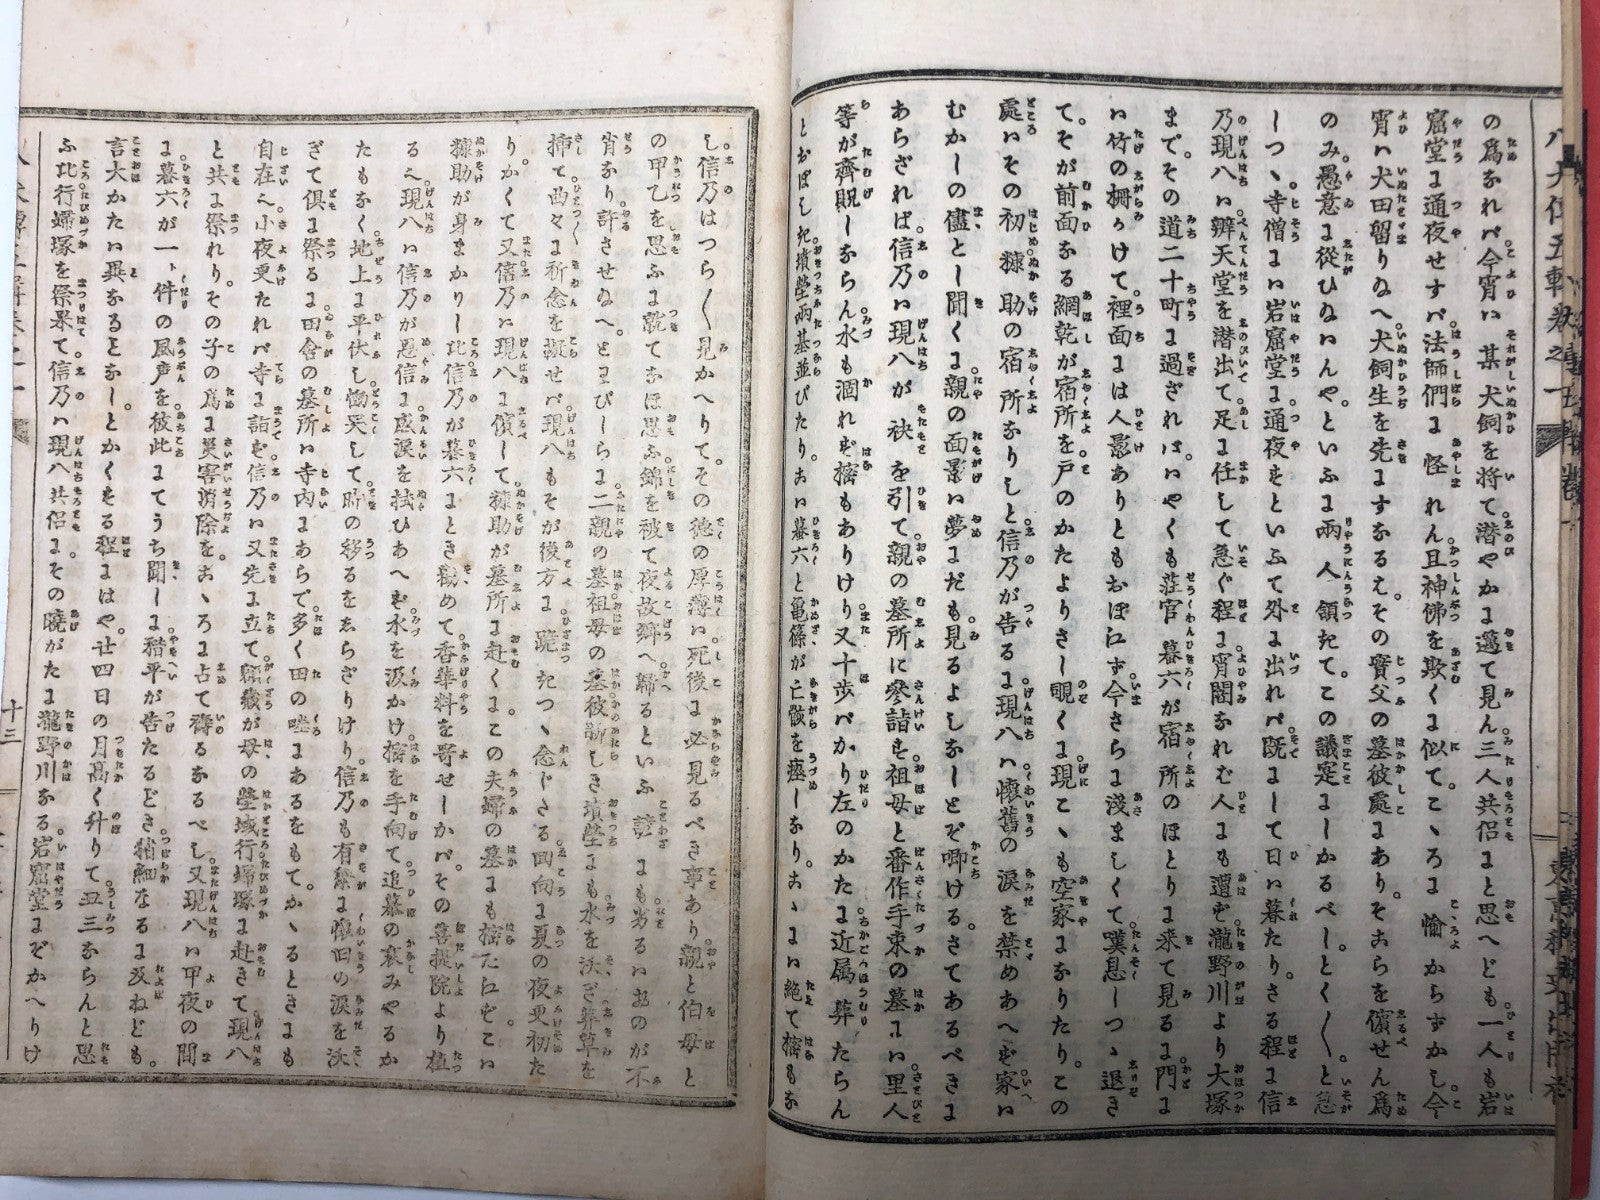 の爲なれバ今宵ハ某犬飼を將て潜やかに邁て見ん三人共侶にと思へども一人も岩
窟堂に通夜せずバ法師們に怪れん且神佛を欺くに似て。こゝろに愉からずかし今
宵ハ犬田留りぬへ犬飼生を先ますなるえ。その實父の墓彼處にあり。そこらを儐せん爲
のみ愚意に從ひぬんや。といふに兩人領きて。この議定にしかるべし。とく〳〵と急
しつゝ寺僧にハ岩窟堂に通夜をといふて外に出れバ既にして日ハ暮たり。さる程に信
乃現八ハ辨天堂を潜出て足に任して急ぐ程に宵闇なれむ人にも遭ず瀧野川より大塚
まで。その道二十町に過ざれバ。いやくも莊官暮六が宿所のほとりに來て見るに門に
ハ竹の柵かけて裡面にハ人影ありともおぼえず今さらに淺ましくて嘆息しつゝ退き
て。そが前面なる網乾が宿所を戸のかたよりさし覗くに現こゝも空家になりたり。この
處ハその初糠助の宿所なりしと信乃が告るに現八ハ懷舊の涙を禁めあへず家ハ
むかしの儘とし聞くに親の面影ハ夢にだも見るよしなしとぞ啣ける。さてあるべきに
あらざれば信乃ハ現八が袂を引て親の墓所に參詣す祖母と番作手束の墓にハ里人
等が齊貺しならん水も涸れず樒もありけり又十歩バかり左のかたに近属葬たらん
とおぼしき墳塋兩基並びたり。こハ暮六と亀篠が亡骸を瘞しなり。こゝにハ絶て樒もな
し信乃はつら〳〵見かへりて。その徳の厚薄ハ死後に必見るべき事あり親と伯母と
の甲乙を思ふに就てなほ思ふ錦を被て夜故郷へ歸るといふ諺にも劣るハおのが不
肖なり許させぬへ。とわびしらに二親の墓祖母の墓彼新しき墳塋にも水を沃ぎ葬草を
挿て曲々に祈念を凝せバ現八もそが後方に跪きつゝ念じさる回向に夏の夜更初た
り。かくて又信乃ハ現八に儐して糠助が墓所に赴くにこの夫婦の墓にも樒たえずこハ
糠助が身まかりし比信乃が暮六にとき勸めて。香華料を寄せしかバ。その菩提院より植
るに現八ハ信乃が恩信に感涙を拭ひあへず水を汲かけ樒を手向て。追慕の哀みやるか
たもなく地上に平伏し慟哭して時の移るをゑらざりけり信乃も有繋に懷旧の涙を沃
ぎて俱に祭るに田舎の墓所ハ寺内にあらで多く田の畦にあるをもて。かゝるときにも
自在に小夜更たれバ寺に詣を信乃ハ又先に立て額藏が母の塋域行婦塚に赴きて現八
と共に祭れり。その子の爲に災害消除を。こゝろに占て禱るなるべし又現八ハ甲夜の間
に暮六が一件の風声を彼此にてうち聞しに稽平が告たるどき猪細なるに及ねども。
言大かたハ異なるとなし。とかくする程にはや。廿四日の月高く升りて丑三ならんと思
ふ比行婦塚を祭果て信乃ハ現八共侶にその曉がたに瀧野川なる岩窟堂にぞかへりけ
十三